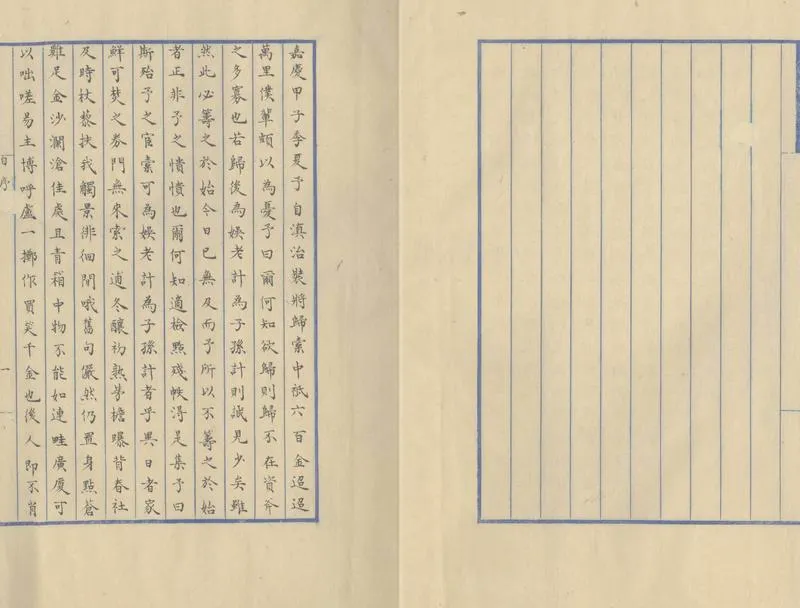 嘉慶甲子季夏予自滇治裝將歸索中祇六百金迢迢
萬里僕輩頗以為憂予曰爾何知欲歸則歸不在資斧
之多寡也若歸後為娛老計為子孫計則誠見少矣雖
然此必籌之於始今日已無及而予所以不籌之於始
者正非予之憒憒也爾何知適檢點殘帙淂是集予曰
斯殆予之宦索可為娛老計為子孫計者乎異日者家
鮮可焚之券門無來索之逋冬釀初熟茅檐曝背春社
及時杖藜扶我觸景徘徊閒哦舊句儼然仍置身點蒼
雞足金沙瀾滄佳處且青箱中物不能如連畦廣廈可
以咄嗟易主博呼盧一擲作買笑千金也後人即不肖
自序
一